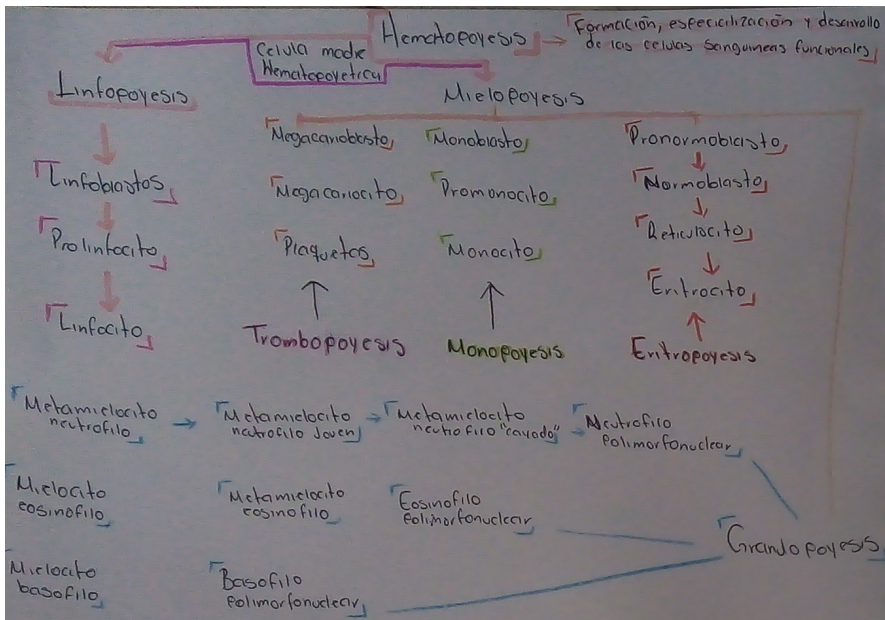 Hematopoyesis
Formación, especicilización y desarrollo
de las celulas sanguineas funcionales
Celula madre
Hematopoyetica
Linfopoyesis
Linfoblastos
Prolinfocito
Linfocito
Mielopoyesis
Megacarioblasto
Megacariocito
Plaquetas
Trombopoyesis
Monoblasto
Promonocito
Monocito
Monopoyesis
Pronormoblasto
Normoblasto
Reticulocito
Eritrocito
Eritropoyesis
Metamielocito
neutrofilo
Metamielocito
neutrofilo Joven
Metamielocito
neutrofilo "cayado"
Neutrofilo
polimorfonuclear
Mielocito
eosinofilo
Metamielocito
eosinofilo
Eosinofilo
polimorfonuclear
Mielocito
basofilo
Basofilo
polimorfonuclear
Granlopoyesis